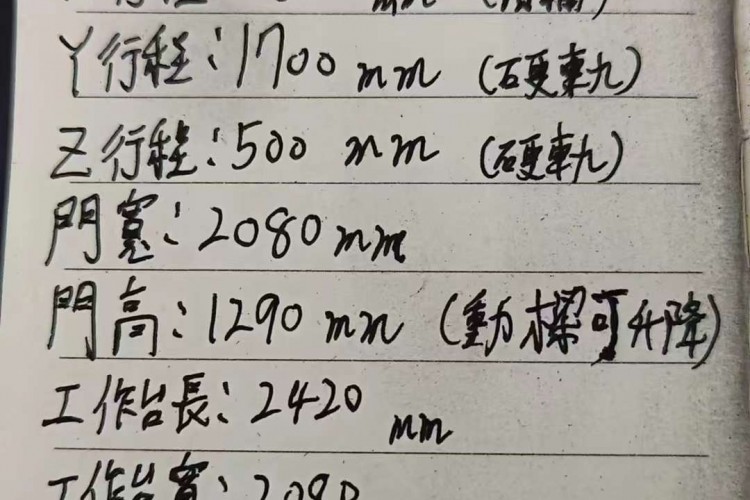 Y行程:1700 mm (硬軌)
Z行程:500 mm (硬軌)
門寬:2080 mm
門高:1290 mm (動樑可升降)
工作台長:2420 mm
工作台寬: